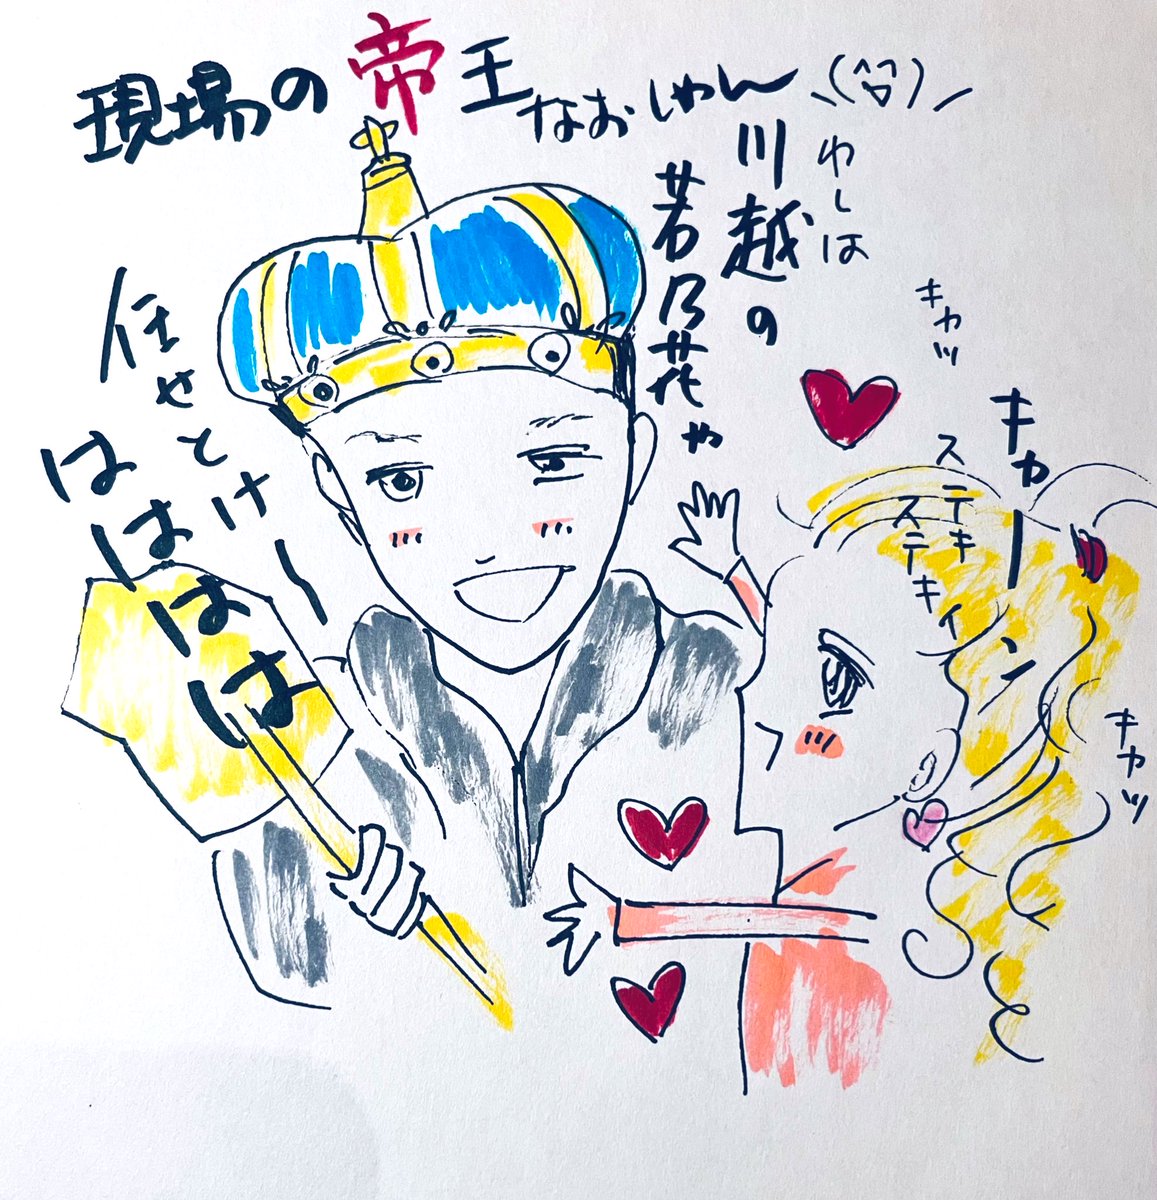 現場の帝王なおしゃん
わしは
川越の
若乃花や
任せとけー
はははは
キャッ
キャーーン
ステキ
ステキィ
キャッ